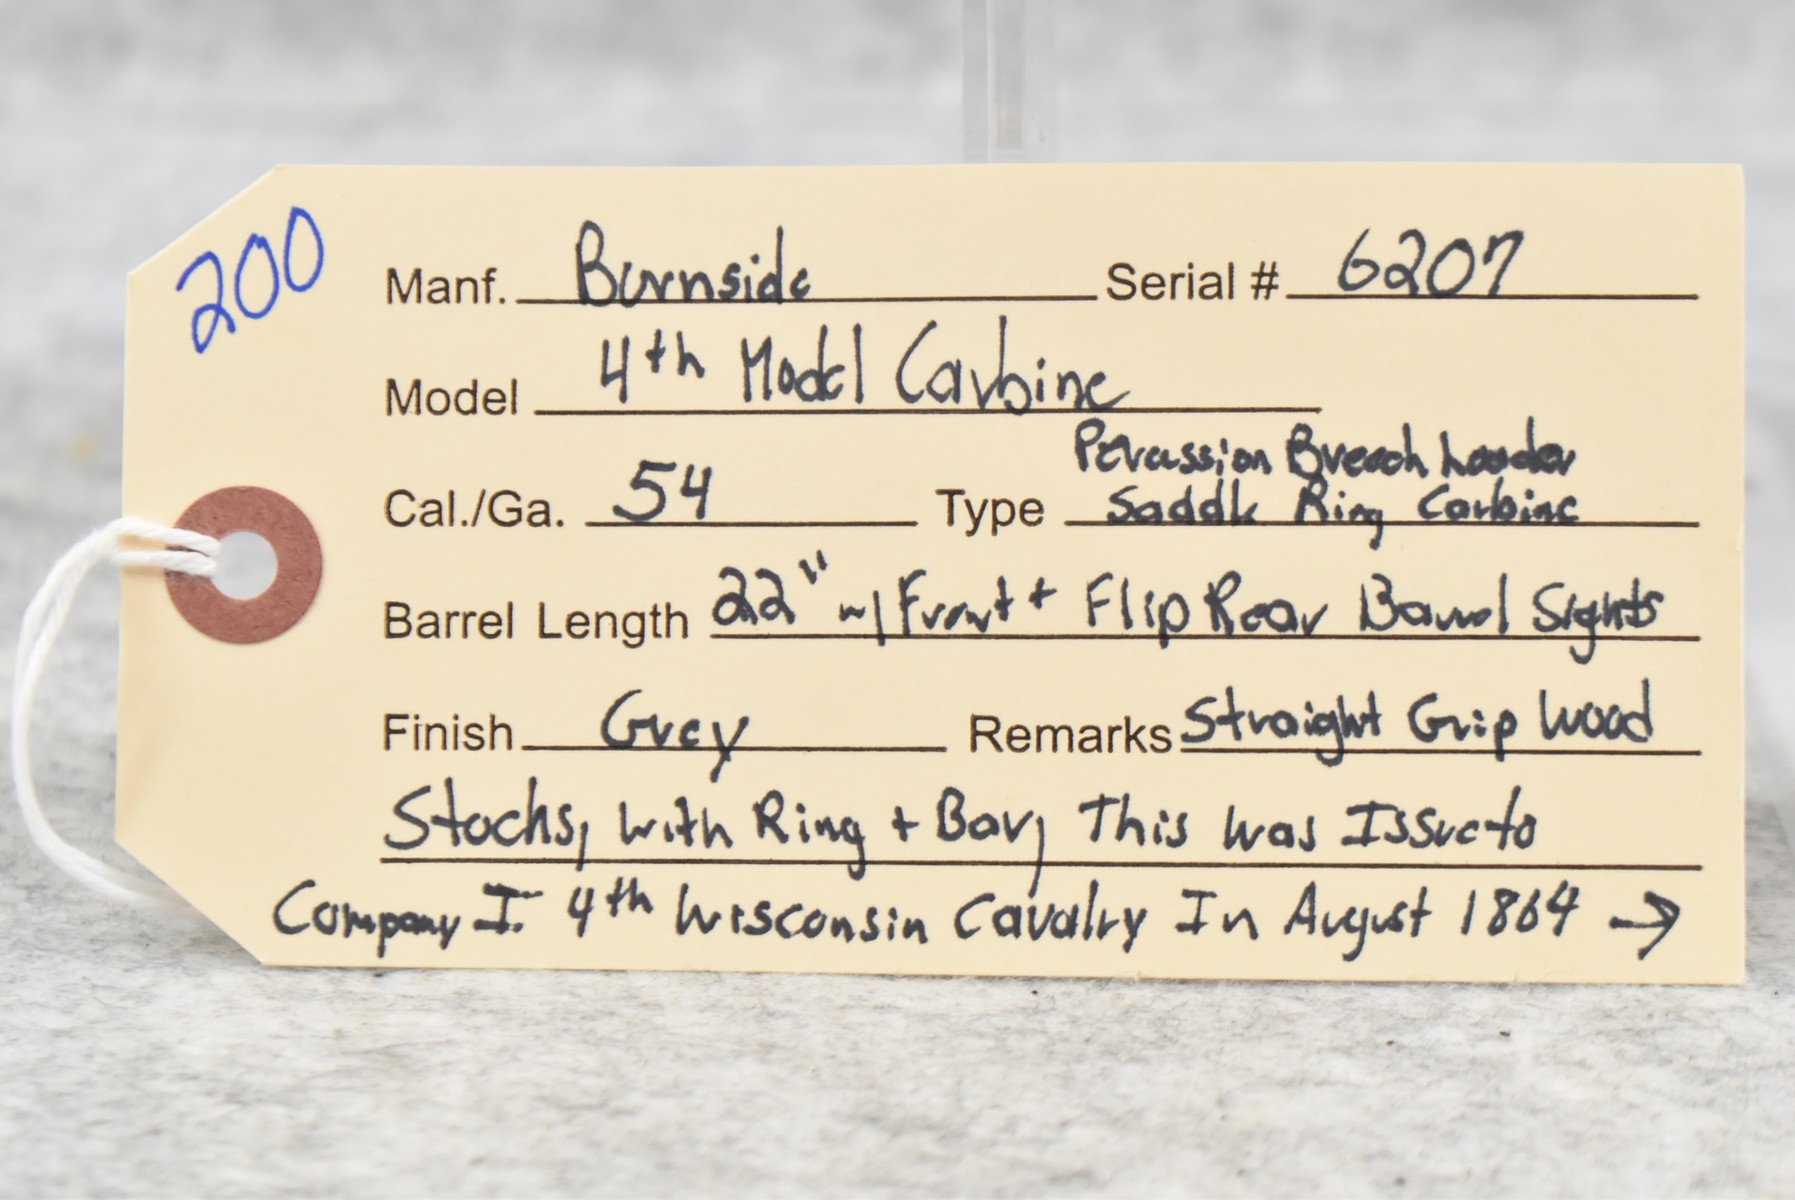 200
Manf. Burnside Serial # 6207
Model 4th Model Carbine
Percussion Breech Loader
Cal./Ga. 54 Type Saddle Ring Carbine
Barrel Length 22" w/ Front + Flip Rear Barrel Sights
Finish Grey Remarks Straight Grip Wood
Stocks, With Ring + Bar, This Was Issue to
Company I. 4th Wisconsin Cavalry In August 1864 →